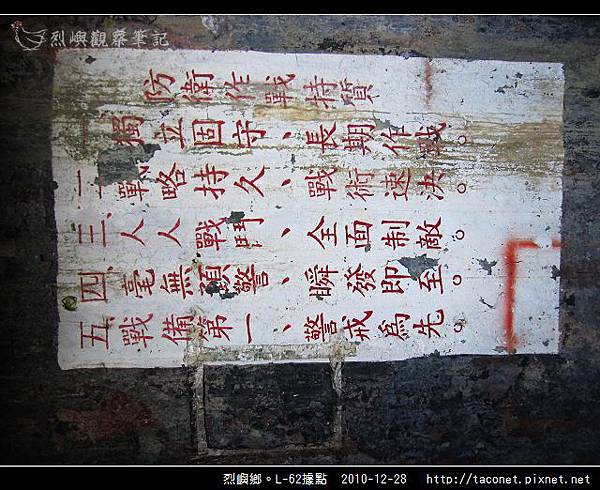 烈嶼觀察筆記
防衛作戰持質
一、獨立固守、長期作戰。
二、戰略持久、戰術速決。
三、人人戰鬥、全面制敵。
四、毫無預警、瞬發即至。
五、戰備第一、警戒為先。
烈嶼鄉。L-62據點 2010-12-28 http://taconet.pixnet.net